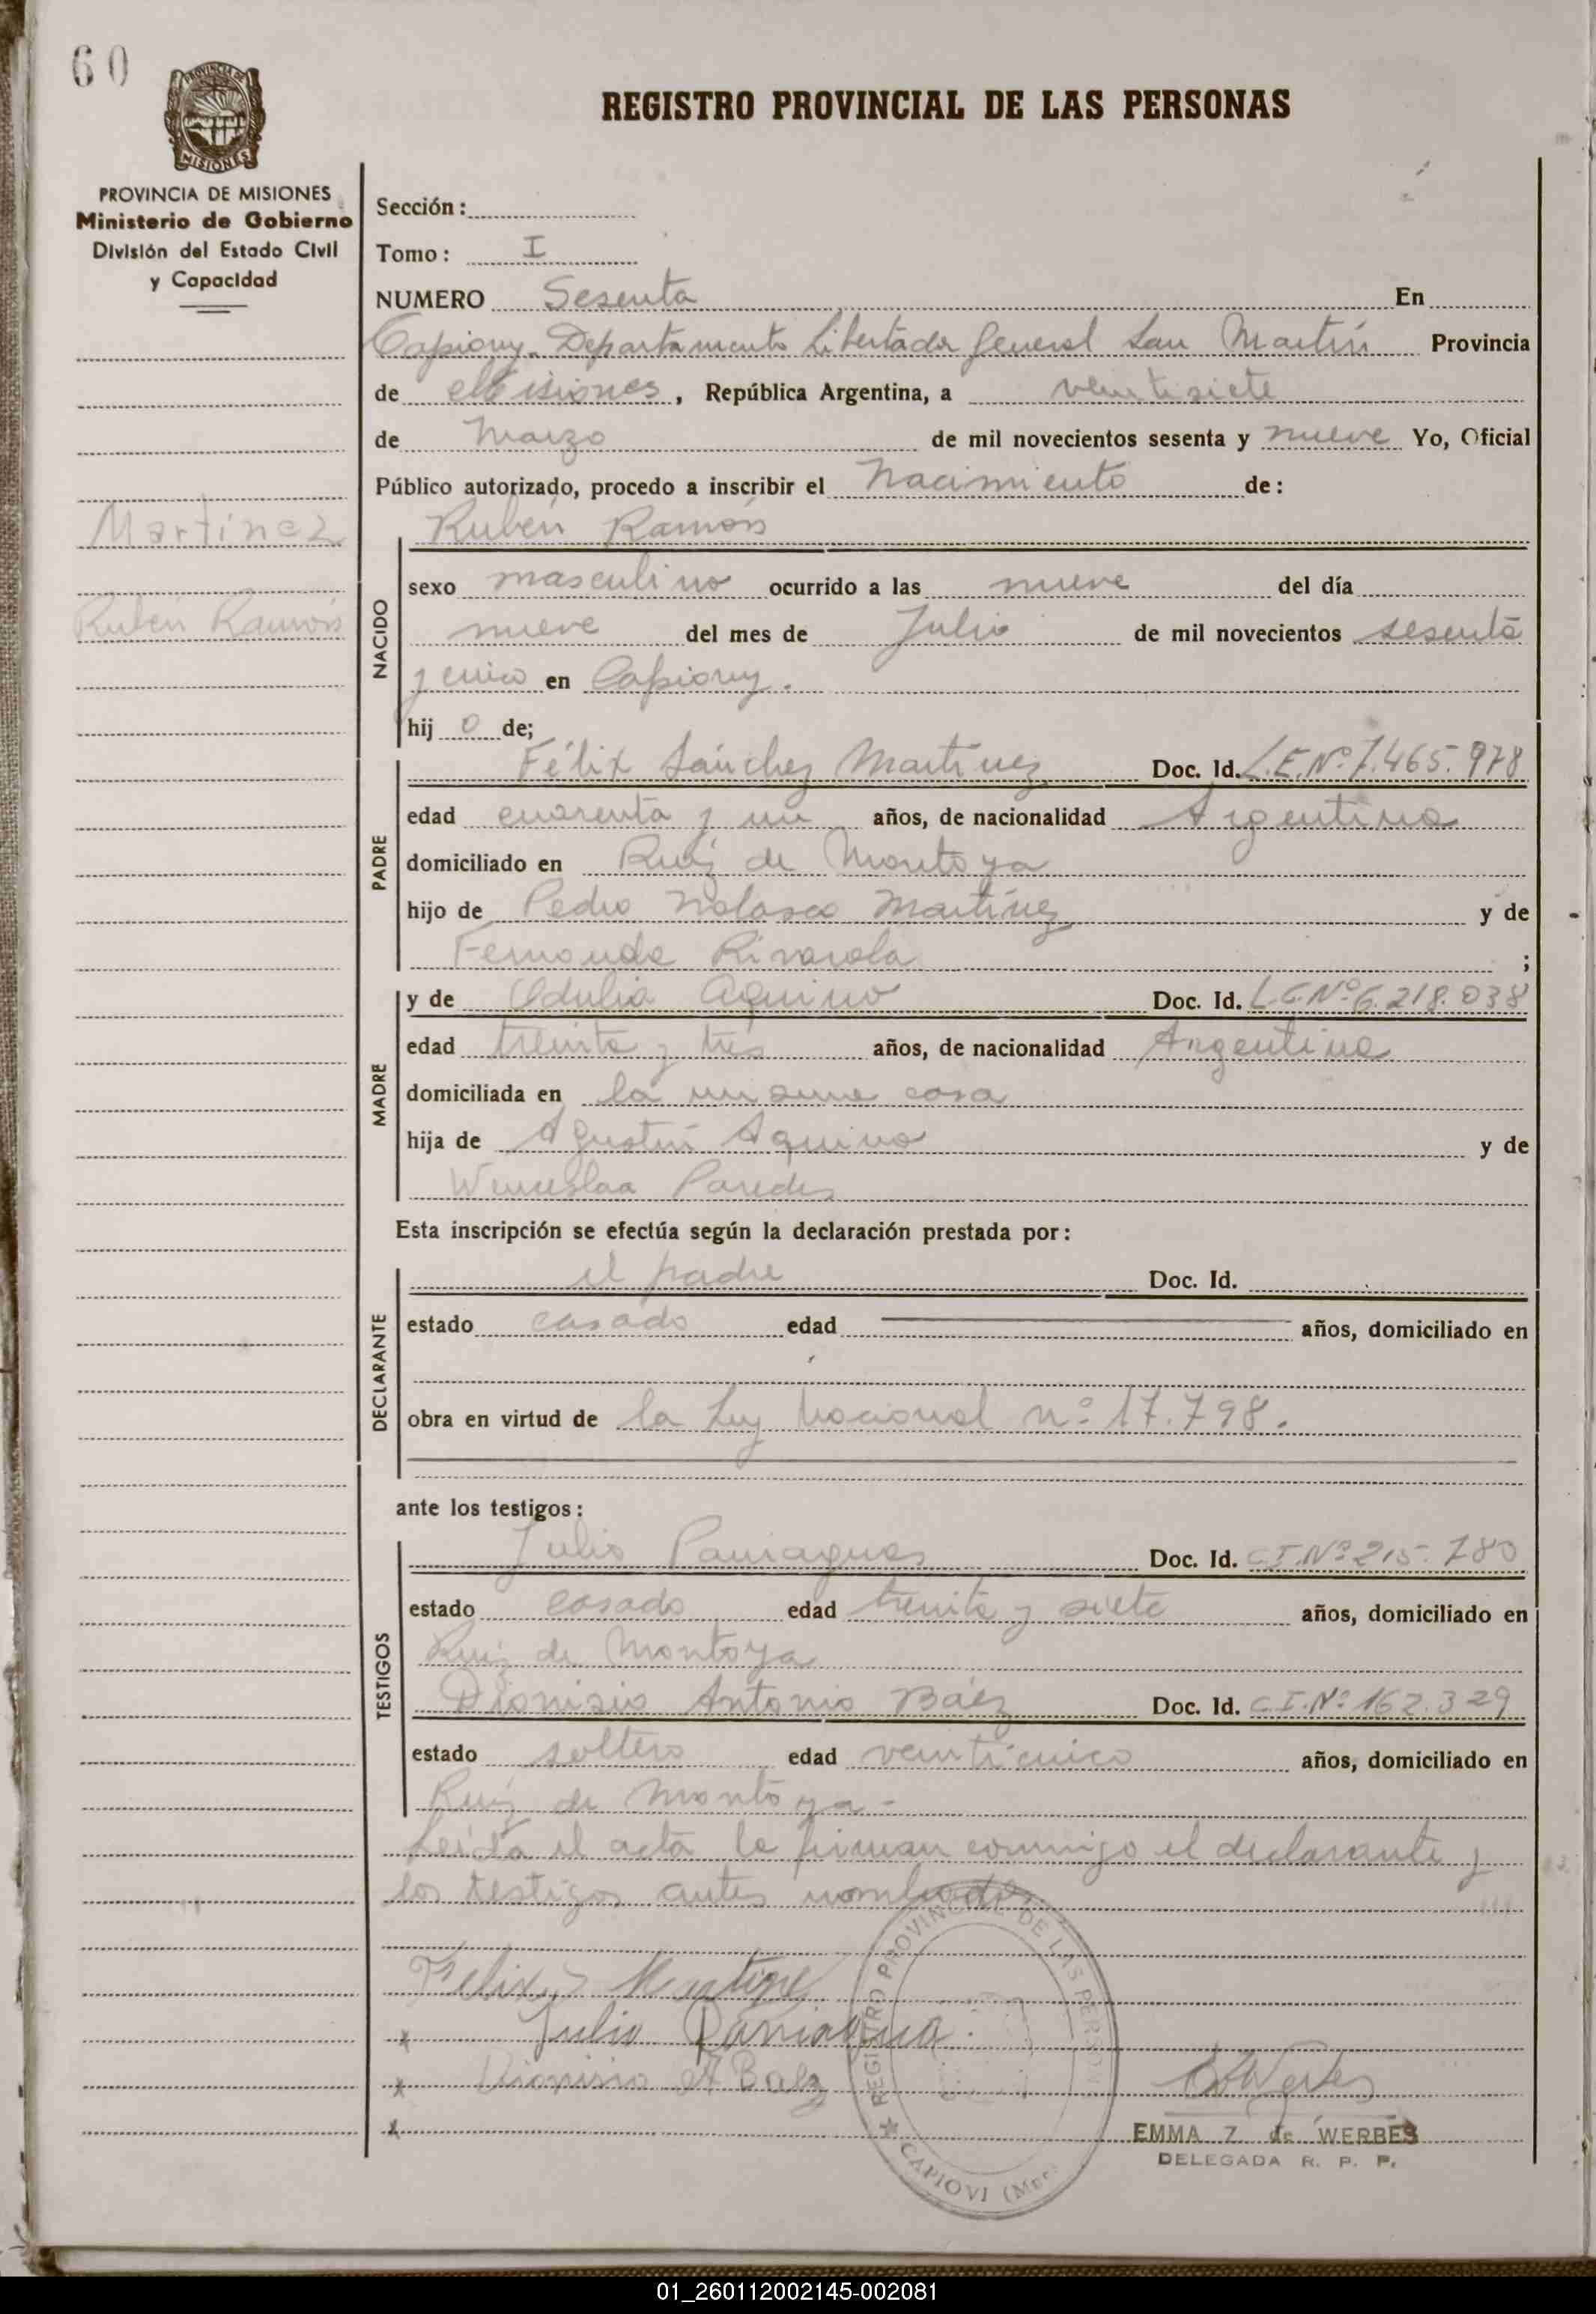 60
PROVINCIA DE MISIONES
REGISTRO PROVINCIAL DE LAS PERSONAS
PROVINCIA DE MISIONES
Ministerio de Gobierno
División del Estado Civil
y Capacidad
Martínez
Rubén Ramón
Sección:
Tomo: I
NUMERO Sesenta En
Capiovy. Departamento Libertador General San Martín Provincia
de Misiones, República Argentina, a veintisiete
de Marzo de mil novecientos sesenta y nueve Yo, Oficial
Público autorizado, procedo a inscribir el Nacimiento de:
Rubén Ramón
NACIDO
sexo masculino ocurrido a las nueve del día
nueve del mes de Julio de mil novecientos sesenta
y cinco en Capiovy.
hij o de;
PADRE
Félix Sánchez Martínez Doc. Id. L.E.Nº 7.465.978
edad cuarenta y un años, de nacionalidad Argentina
domiciliado en Ruiz de Montoya
hijo de Pedro Nolasco Martínez y de
Fernanda Rivarola ;
MADRE
y de Odulia Aquino Doc. Id. L.C.Nº 6.218.038
edad treinta y tres años, de nacionalidad Argentina
domiciliada en la misma casa
hija de Agustín Aquino y de
Wenceslaa Paredes
Esta inscripción se efectúa según la declaración prestada por:
DECLARANTE
el padre Doc. Id.
estado casado edad años, domiciliado en
obra en virtud de la Ley Nacional nº 17.798.
ante los testigos:
TESTIGOS
Julio Paniagua Doc. Id. C.I.Nº 215.780
estado casado edad treinta y siete años, domiciliado en
Ruiz de Montoya
Dionisio Antonio Báez Doc. Id. C.I.Nº 162.329
estado soltero edad veinticinco años, domiciliado en
Ruiz de Montoya -
Leída el acta la firman conmigo el declarante y
los testigos antes nombrados.
Felix S Martine
x Julio Paniagua.
x Dionisio A Baez
x
REGISTRO PROVINCIAL DE LAS PERSONAS
CAPIOVI (Mnes
EMMA Z de WERBES
DELEGADA R. P. P.
01_260112002145-002081